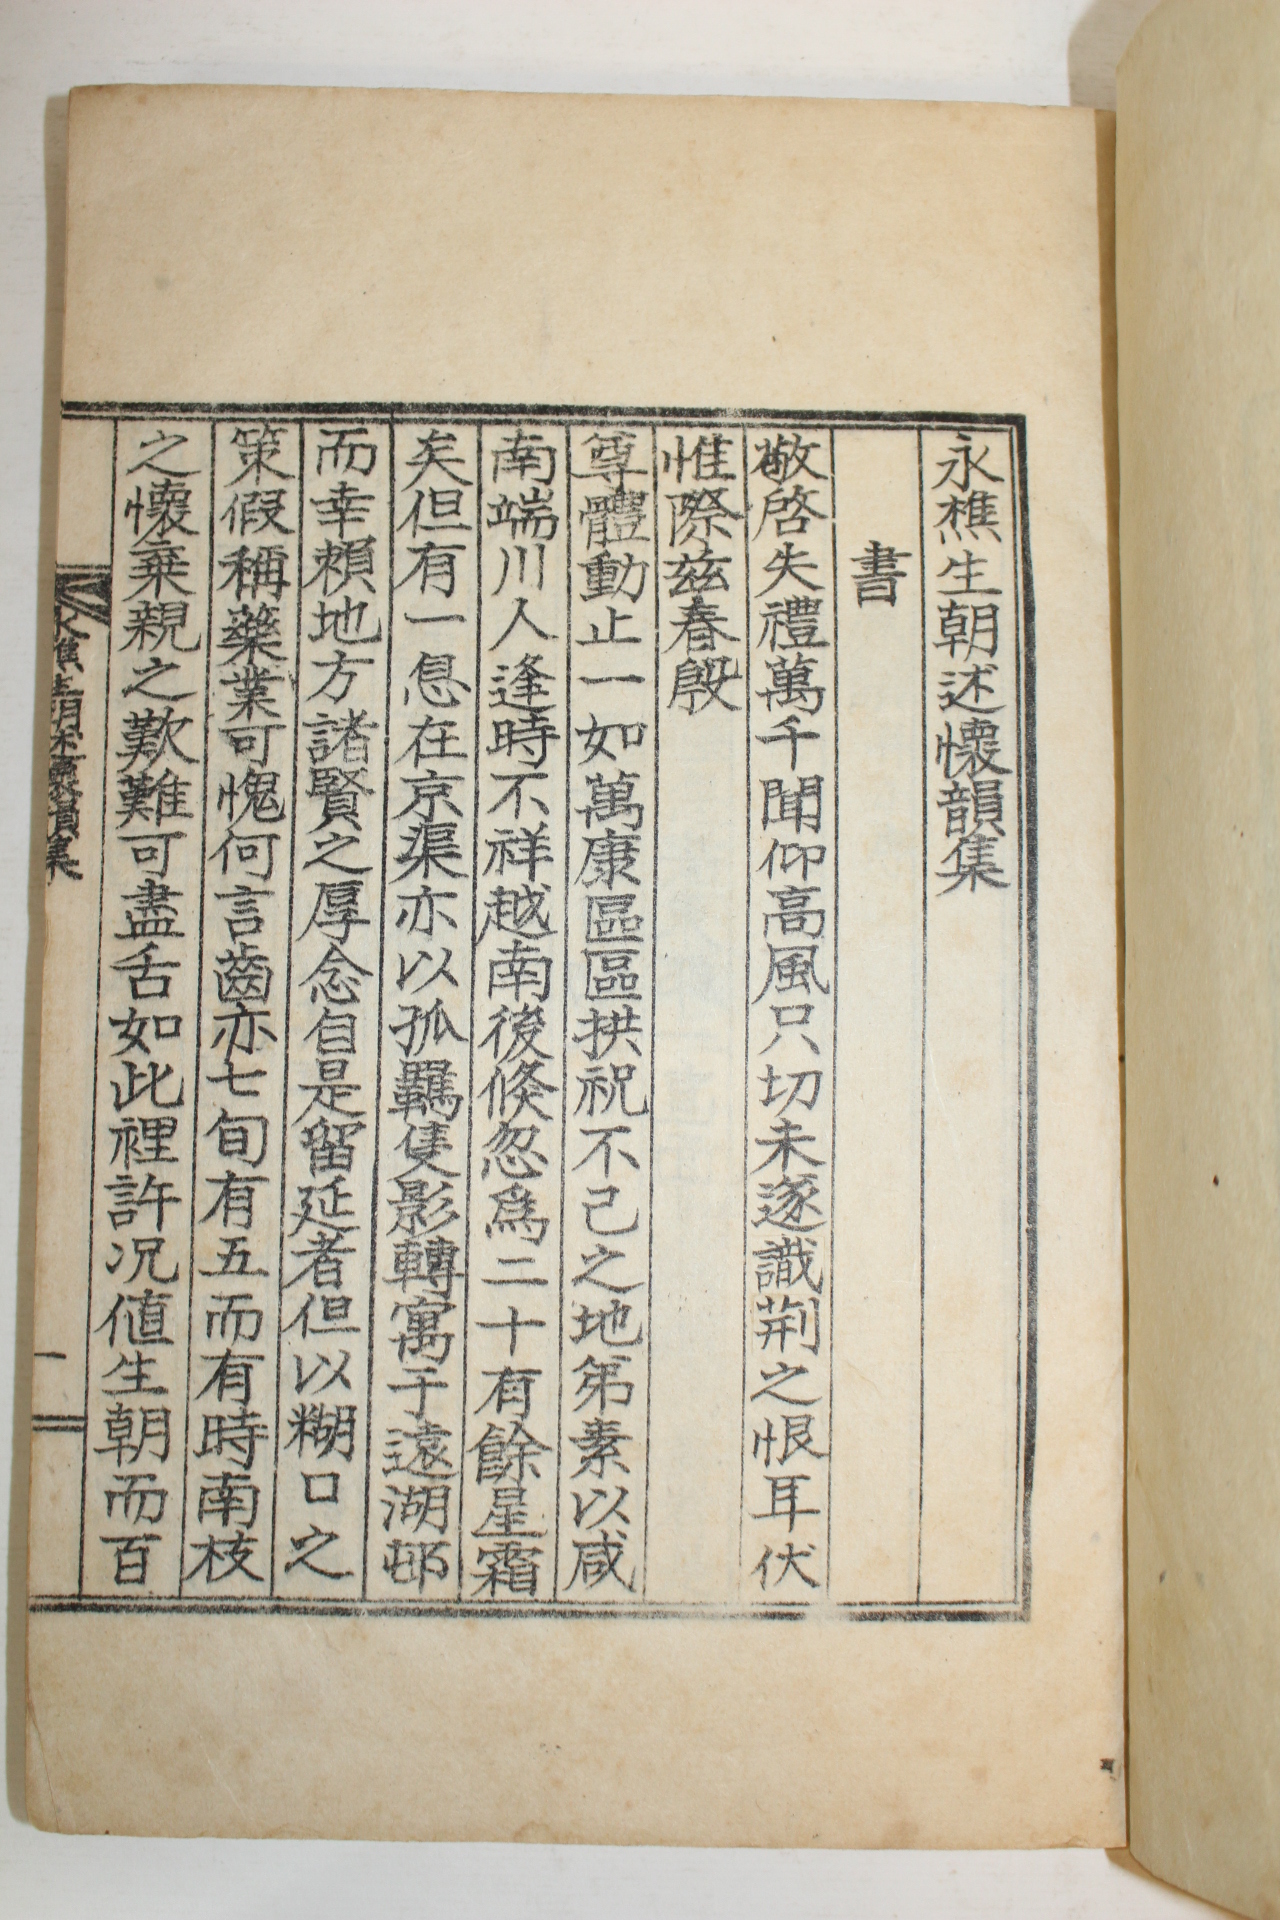 永樵生朝述懷韻集
書
敬啓失禮萬千聞仰高風只切未遂識荆之恨耳伏
惟際玆春殷
尊體動止一如萬康區區拱祝不已之地弟素以咸
南端川人逢時不祥越南後倏忽爲二十有餘星霜
矣但有一息在京渠亦以孤羈隻影轉寓于遠湖邨
而幸賴地方諸賢之厚念自是留延者但以糊口之
策假稱藥業可愧何言齒亦七旬有五而有時南枝
之懷棄親之歎難可盡舌如此裡許况値生朝而百
永樵生朝述懷韻集
一